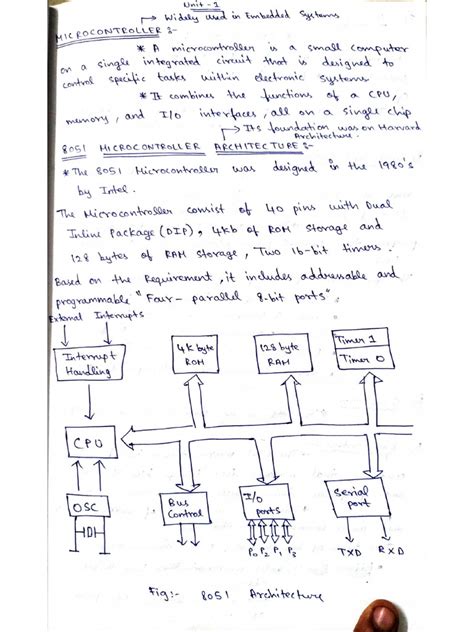 Unit - 1
→ Widely used in Embedded Systems
MICROCONTROLLER :-
* A microcontroller is a small computer
on a single integrated circuit that is designed to
control specific tasks within electronic systems
* It combines the functions of a CPU,
memory, and I/O interfaces, all on a single chip
→ Its foundation was on Harvard
Architecture.
8051 MICROCONTROLLER ARCHITECTURE :-
* The 8051 Microcontroller was designed in the 1980's
by Intel.
The Microcontroller consist of 40 pins with Dual
Inline Package (DIP), 4kb of ROM storage and
128 bytes of RAM storage, Two 16-bit timers.
Based on the Requirement, it includes addressable and
programmable "Four - parallel 8-bit ports".
External Interrupts
Interrupt
Handling
4k byte
ROM
128 byte
RAM
Timer 1
Timer 0
CPU
OSC
Bus
Control
I/O
ports
Serial
port
P0 P2 P1 P3
TXD RXD
Fig:- 8051 Architecture